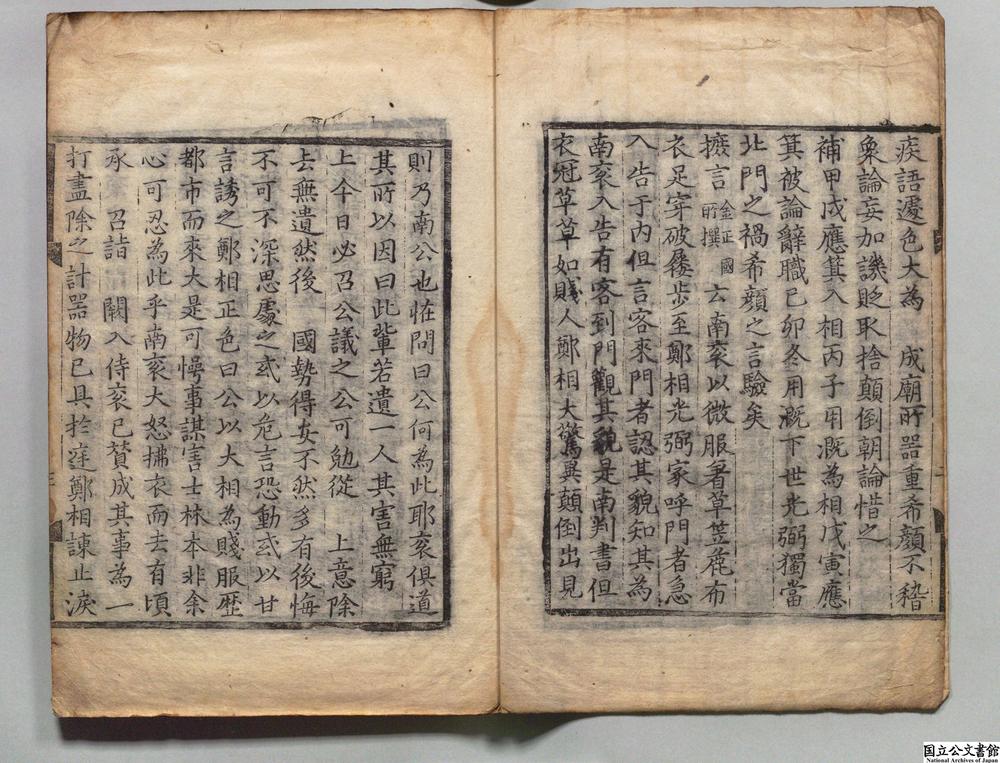 疾語遽色大為　成廟所器重希顔不稽
衆論妄加譏貶取捨顛倒朝論惜之
補甲戌應箕入相丙子用漑為相戊寅應
箕被論辭職己卯冬用漑下世光弼獨當
北門之禍希顔之言驗矣
摭言金正國所撰云南衮以微服著草笠麁布
衣足穿破屨步至鄭相光弼家呼門者急
入告于內但言客來門者認其貌知其為
南衮入告有客到門觀其貌是南判書但
衣冠草草如賤人鄭相大驚異顛倒出見
則乃南公也恠問曰公何為此耶衮俱道
其所以因曰此輩若遺一人其害無窮
上今日必召公議之公可勉從　上意除
去無遺然後　國勢得安不然多有後悔
不可不深思處之或以危言恐動或以甘
言誘之鄭相正色曰公以大相為賤服歴
都市而來大是可愕事謀害士林本非余
心可忍為此乎南衮大怒拂衣而去有頃
承　召詣　闕入侍衮已賛成其事為一
打盡除之計器物已具於庭鄭相諫止淚
国立公文書館
National Archives of Japan